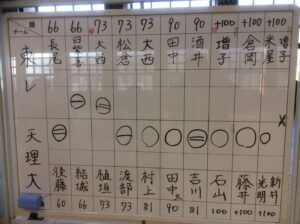 組 チーム 66 66 73 73 73 90 90 +100 +100 +100
東レ 長尾 大西 松倉 大西 田中 酒井 増子 倉岡 米屋 増子
天理大 後藤 結城 植垣 渡部 村上 田中 吉川 石山 藤井 光明 新井
60 66 73 73 81 90 81 100 +100 +100 +100